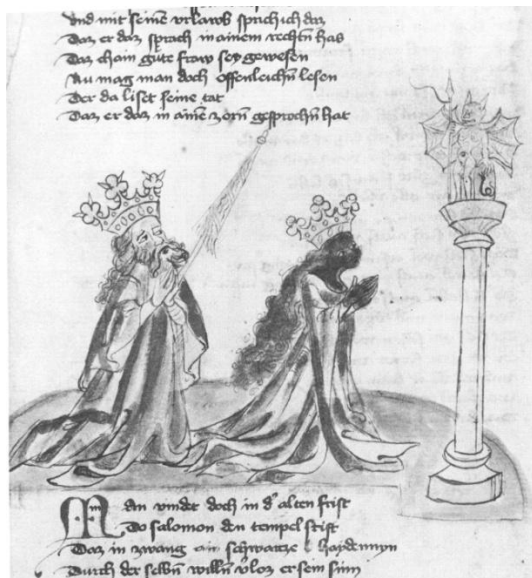 Und mit seinē urlawb sprich ich daz
Daz er daz sprach in ainem rechtn̄ has
Daz chain gute fraw sey gewesen
Nu mag man doch offenleichn̄ lesen
Der da liset seine tat
Daz er daz in ainē zorn gesprochn̄ hat
Man vindet doch in d' alten frist
Do salomon den tempel stift
Daz in zwang ain schwartze haydennyn
Durch der selbn̄ willn̄ v'loz er sein sinn